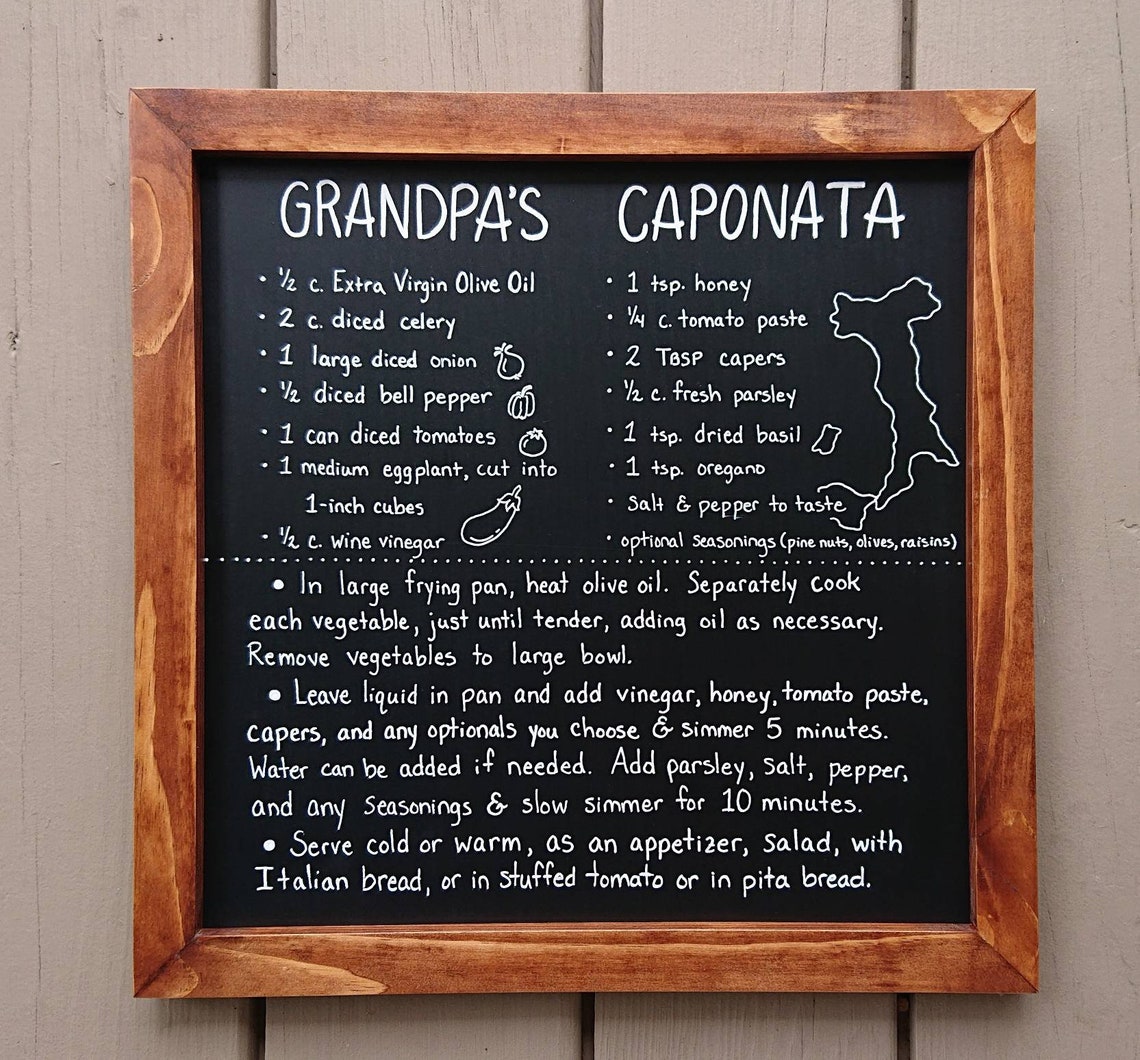 GRANDPA'S CAPONATA
• ½ c. Extra Virgin Olive Oil
• 2 c. diced celery
• 1 large diced onion
• ½ diced bell pepper
• 1 can diced tomatoes
• 1 medium eggplant, cut into
1-inch cubes
• ½ c. wine vinegar
• 1 tsp. honey
• ¼ c. tomato paste
• 2 TBSP capers
• ½ c. fresh parsley
• 1 tsp. dried basil
• 1 tsp. oregano
• Salt & pepper to taste
• optional seasonings (pine nuts, olives, raisins)
• In large frying pan, heat olive oil. Separately cook
each vegetable, just until tender, adding oil as necessary.
Remove vegetables to large bowl.
• Leave liquid in pan and add vinegar, honey, tomato paste,
capers, and any optionals you choose & simmer 5 minutes.
Water can be added if needed. Add parsley, salt, pepper,
and any seasonings & slow simmer for 10 minutes.
• Serve cold or warm, as an appetizer, salad, with
Italian bread, or in stuffed tomato or in pita bread.